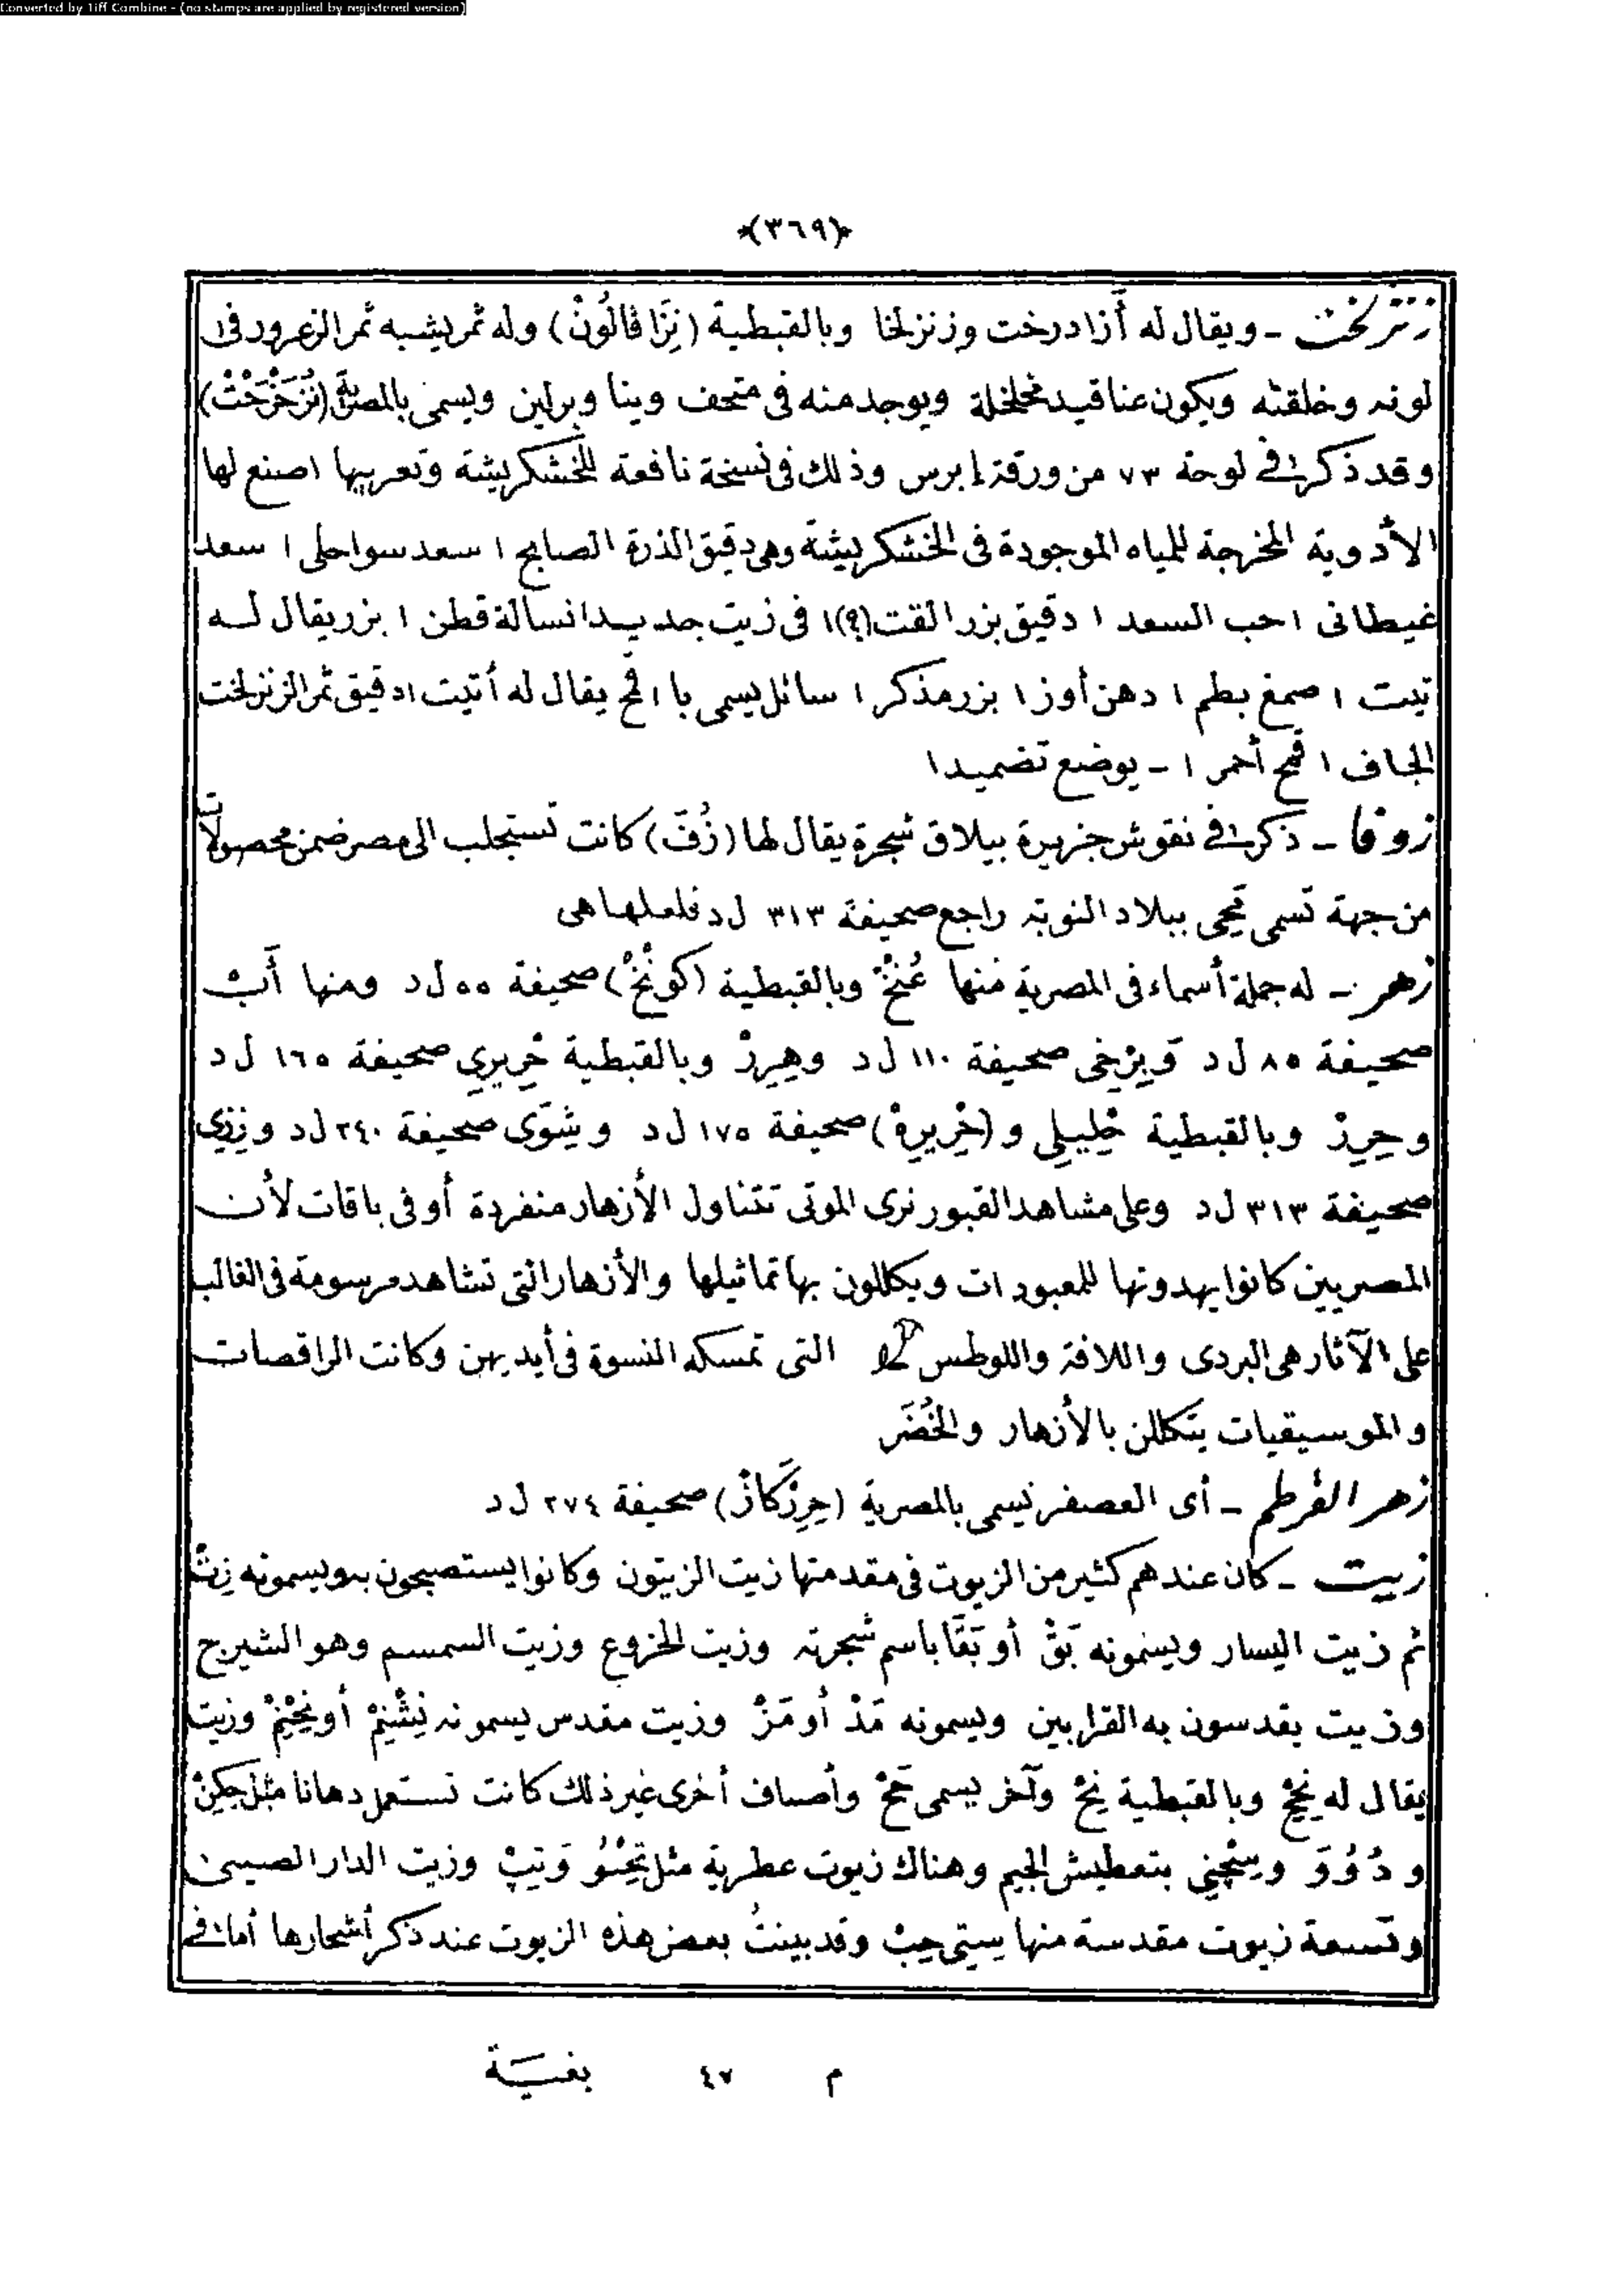 Converted by Tiff Combine - (no stamps are applied by registered version)
*(٣٦٩)*
زنزلخت ـ ويقال له أزادرخت وزنزلخا وبالقبطية (نِزَاڤَالُونْ) وله ثمر يشبه ثمر الزعرور فى
لونه وخلقته ويكون عناقيد مخلخلة ويوجد منه فى متحف وينا وبرلين ويسمى بالمصرية
وقد ذكر فى لوحة ٧٣ من ورقة إبرس وذلك فى نسخة نافعة للخشكريشة وتعريبها اصنع لها
الأدوية المخرجة للمياه الموجودة فى الخشكريشة وهى دقيق الذرة الصابح ١ سعد سواحلى ١ سعد
غيطانى ١ حب السعد ١ دقيق بزر القت(؟)١ فى زيت جديد ١ نسالة قطن ١ بزر يقال له
تيت ١ صمغ بطم ١ دهن أوز ١ بزر مذكر ١ سائل يسمى با ١ قمح يقال له أتيت ١ دقيق ثمر الزنزلخت
الجاف ١ قمح أحمر ١ ـ يوضع تضميدا
زوفا ـ ذكر فى نقوش جزيرة بيلاق شجرة يقال لها (زُفَ) كانت تستجلب الى مصر ضمن محصولات
من جهة تسمى قمحى ببلاد النوبة راجع صحيفة ٣١٣ ل د فلعلها هى
زهر ـ له جملة أسماء فى المصرية منها عُنخْ وبالقبطية (كونْخْ) صحيفة ٥٥ ل د ومنها أَبْ
صحيفة ٨٥ ل د وَبِرْخِى صحيفة ١١٠ ل د وهِرِرْ وبالقبطية خْرِيرِى صحيفة ١٦٥ ل د
وحِرِرْ وبالقبطية خْلِيلِى و (خْرِيرِهْ) صحيفة ١٧٥ ل د وشِوَى صحيفة ٢٤٠ ل د وزِزِى
صحيفة ٣١٣ ل د وعلى مشاهد القبور نرى الموتى تتناول الأزهار منفردة أو فى باقات لأن
المصريين كانوا يهدونها للمعبودات ويكللون بها تماثيلها والأزهار التى تشاهد مرسومة فى الغالب
على الآثار هى البردى واللافة واللوطس التى تمسكه النسوة فى أيديهن وكانت الراقصات
والموسيقيات يتكللن بالأزهار والخُضَر
زهر القرطم ـ أى العصفر يسمى بالمصرية (حِرِرْكَازْ) صحيفة ٢٧٤ ل د
زيت ـ كان عندهم كثير من الزيوت فى مقدمتها زيت الزيتون وكانوا يستصبحون به ويسمونه زِتْ
ثم زيت اليسار ويسمونه بَقْ أو بَقَا باسم شجرته وزيت الخروع وزيت السمسم وهو الشيرج
وزيت يقدسون به القرابين ويسمونه مَدْ أو مَزْ وزيت مقدس يسمونه نِشْنِمْ أو نِخْنِمْ وزيت
يقال له نِحِحْ وبالقبطية نِحْ وآخر يسمى حَمْ وأصناف أخرى غير ذلك كانت تستعمل دهانا مثل حِكِنْ
و دُوُوَ وسِنْچِنِى بتعطيش الجيم وهناك زيوت عطرية مثل تِحِنُو وَتِپْ وزيت الدار الصينى
وتسعة زيوت مقدسة منها سِتِى حِبْ وقد بينتُ بعض هذه الزيوت عند ذكر أشجارها أما فى
م ٤٧ بغية